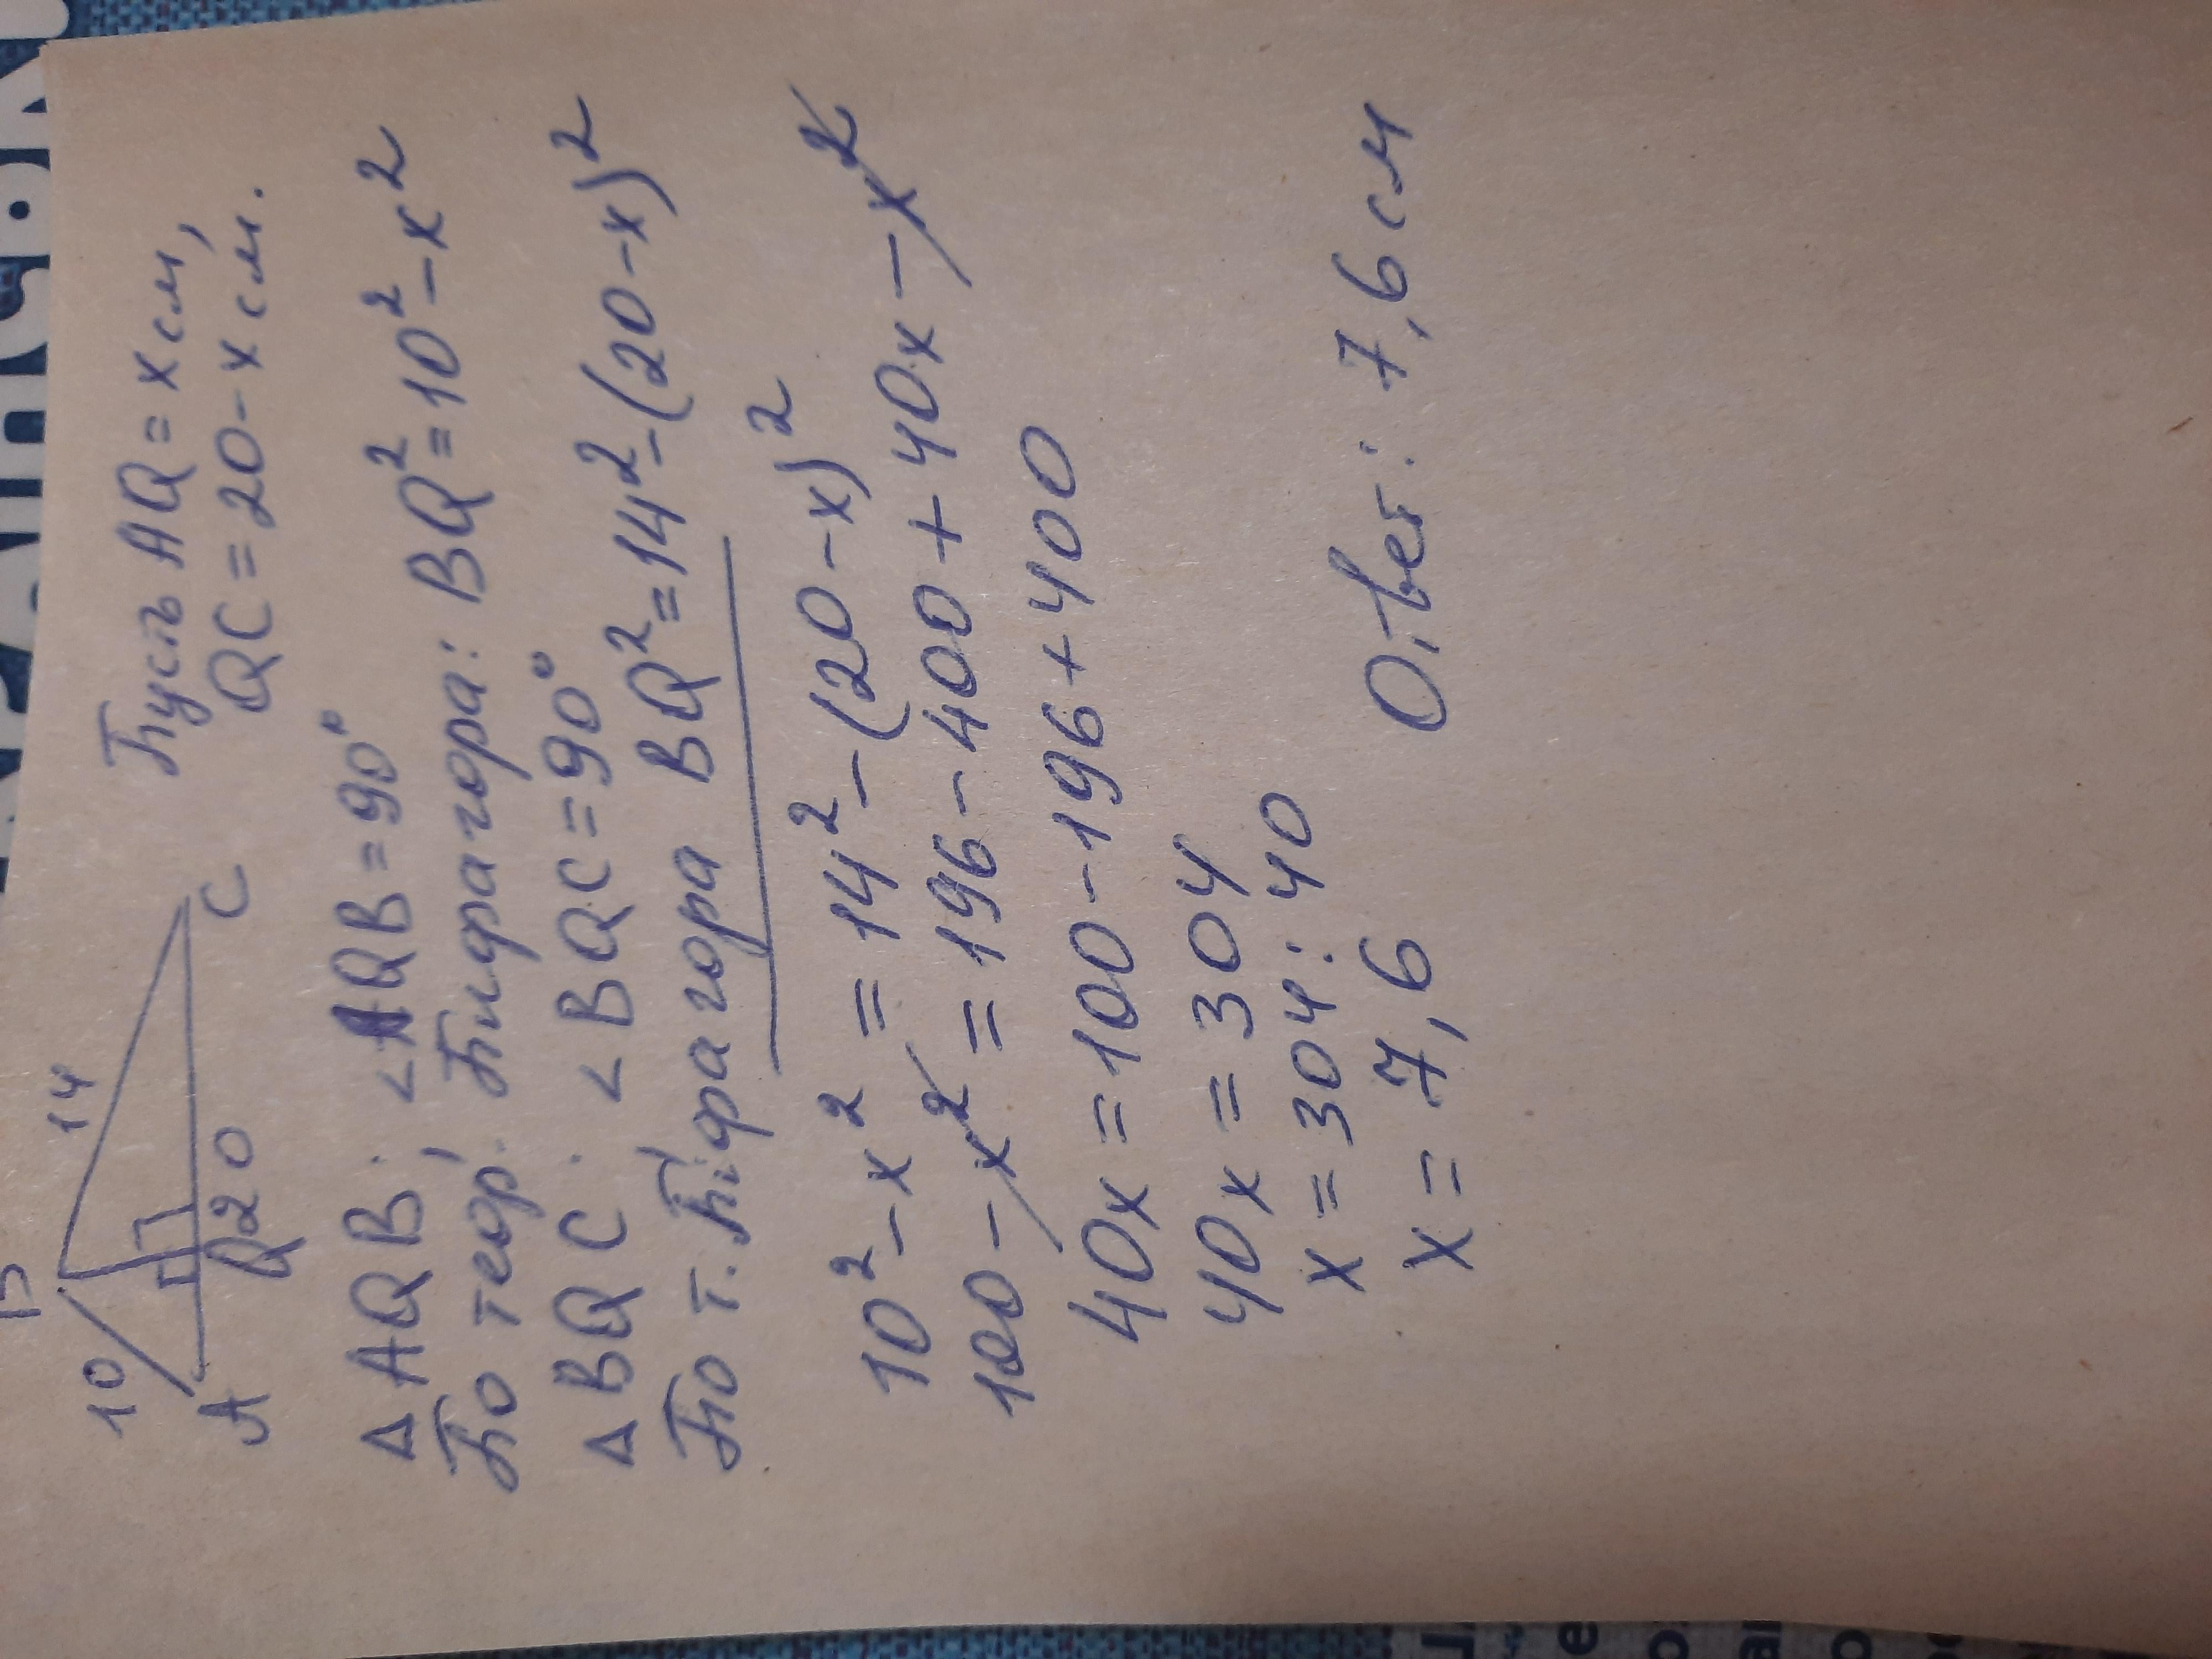 B
10
14
A
Q
20
C
Пусть AQ = x см,
QC = 20-x см.
△AQB: <AQB=90°
По теор. Пифагора: BQ²=10²-x²
△BQC: <BQC=90°
По т. Пифагора BQ²=14²-(20-x)²
10²-x² = 14²-(20-x)²
100-x² = 196-400+40x-x²
40x = 100-196+400
40x = 304
x = 304:40
x = 7,6
Ответ: 7,6 см